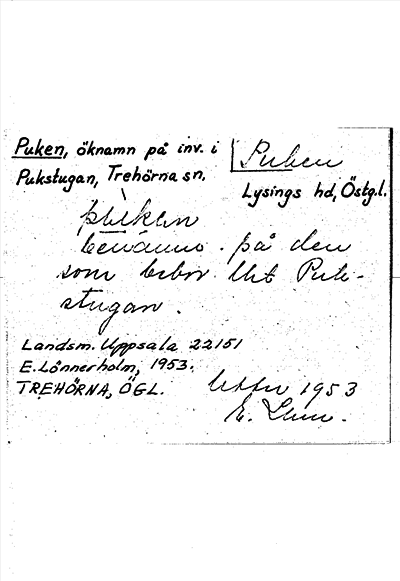 Puken, öknamn på inv. i
Pukstugan, Trehörna sn.
Puken
Lysings hd, Östg.l.
benämns på den
som bebor Puk-
stugan.
Landsm. Uppsala 22151
E. Lönnerholm, 1953.
TREHÖRNA, ÖGL.
1953
E.